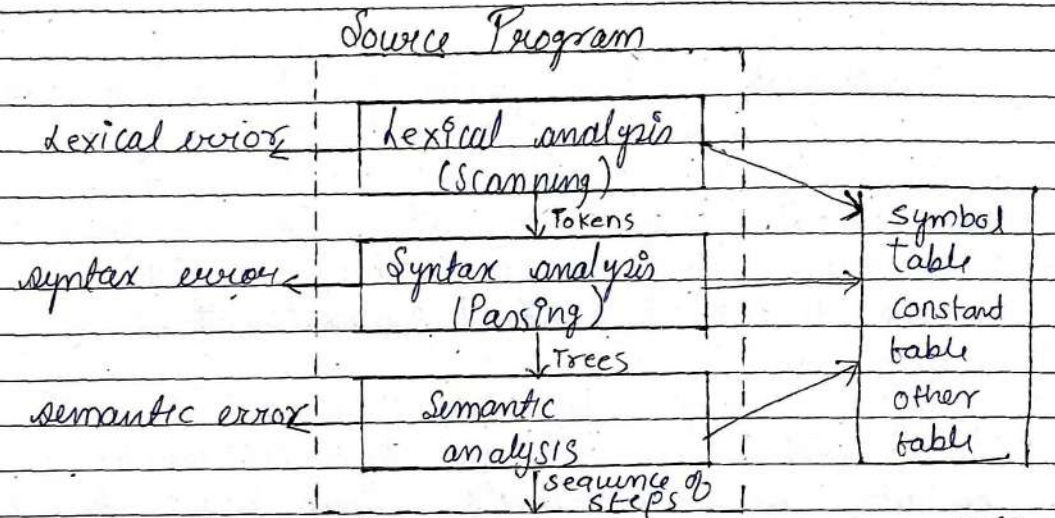 Source Program
Lexical error
Lexical analysis
(Scanning)
Tokens
syntax error
Syntax analysis
(Parsing)
Trees
semantic error
Semantic
analysis
sequence of
steps
symbol
table
constand
table
other
table